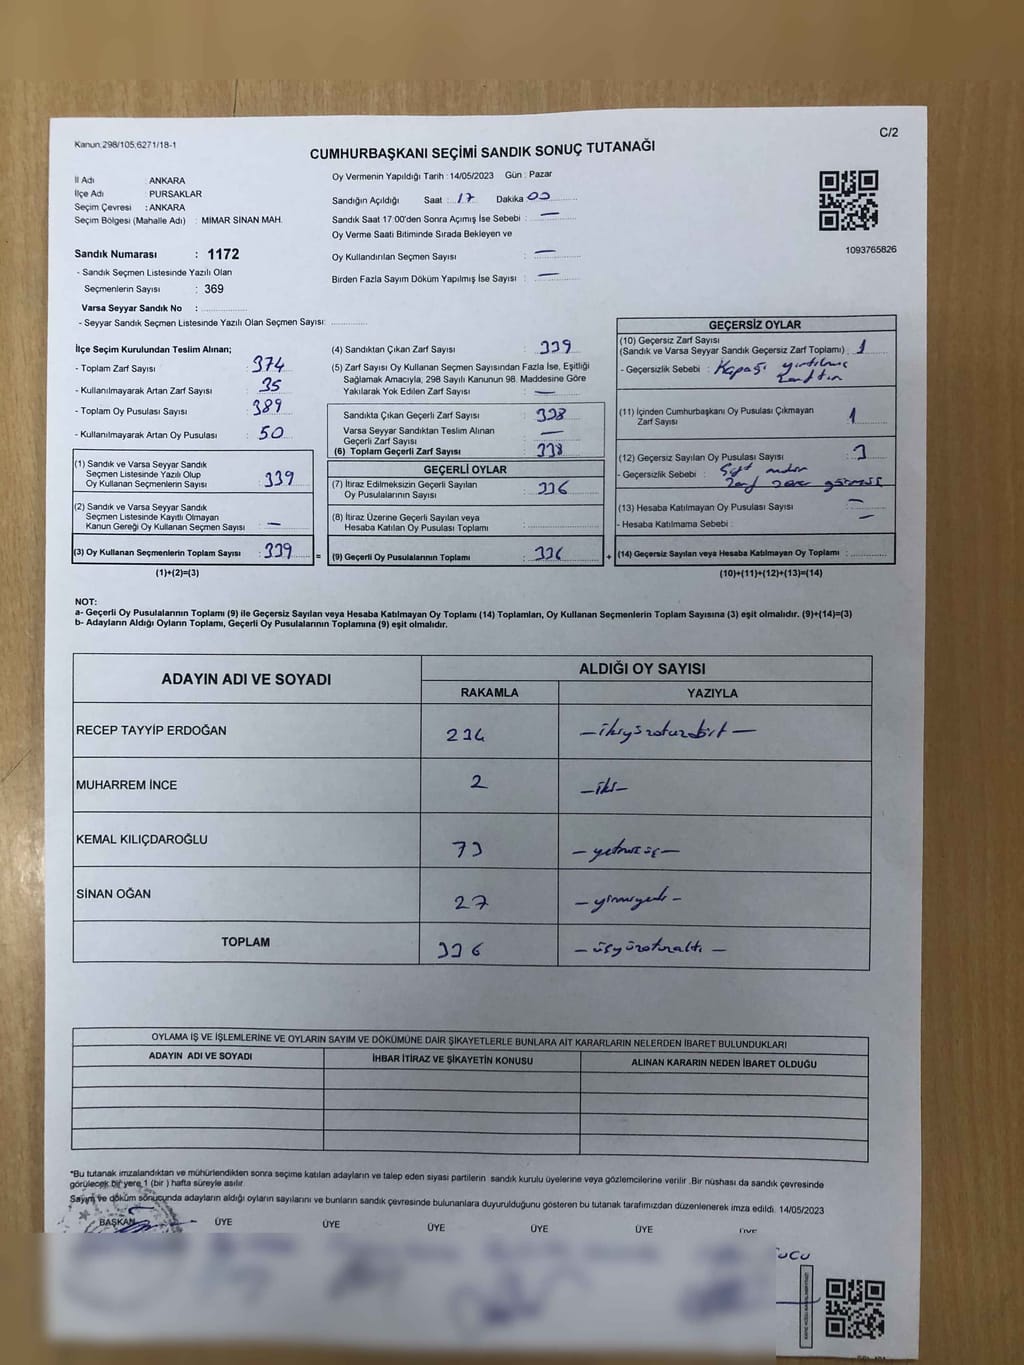 C/2
Kanun:298/105;6271/18-1
CUMHURBAŞKANI SEÇİMİ SANDIK SONUÇ TUTANAĞI
İl Adı : ANKARA
İlçe Adı : PURSAKLAR
Seçim Çevresi : ANKARA
Seçim Bölgesi (Mahalle Adı) : MİMAR SİNAN MAH.
Sandık Numarası : 1172
- Sandık Seçmen Listesinde Yazılı Olan
Seçmenlerin Sayısı : 369
Varsa Seyyar Sandık No :
- Seyyar Sandık Seçmen Listesinde Yazılı Olan Seçmen Sayısı:
Oy Vermenin Yapıldığı Tarih : 14/05/2023 Gün : Pazar
Sandığın Açıldığı Saat : 17 Dakika 00
Sandık Saat 17:00'den Sonra Açımış İse Sebebi : —
Oy Verme Saati Bitiminde Sırada Bekleyen ve
Oy Kullandırılan Seçmen Sayısı : —
Birden Fazla Sayım Döküm Yapılmış İse Sayısı : —
1093765826
İlçe Seçim Kurulundan Teslim Alınan;
- Toplam Zarf Sayısı : 374
- Kullanılmayarak Artan Zarf Sayısı : 35
- Toplam Oy Pusulası Sayısı : 389
- Kullanılmayarak Artan Oy Pusulası : 50
(1) Sandık ve Varsa Seyyar Sandık
Seçmen Listesinde Yazılı Olup
Oy Kullanan Seçmenlerin Sayısı : 339
(2) Sandık ve Varsa Seyyar Sandık
Seçmen Listesinde Kayıtlı Olmayan
Kanun Gereği Oy Kullanan Seçmen Sayısı : —
(3) Oy Kullanan Seçmenlerin Toplam Sayısı : 339 =
(1)+(2)=(3)
(4) Sandıktan Çıkan Zarf Sayısı : 339
(5) Zarf Sayısı Oy Kullanan Seçmen Sayısından Fazla İse, Eşitliği
Sağlamak Amacıyla, 298 Sayılı Kanunun 98. Maddesine Göre
Yakılarak Yok Edilen Zarf Sayısı : —
Sandıkta Çıkan Geçerli Zarf Sayısı : 338
Varsa Seyyar Sandıktan Teslim Alınan
Geçerli Zarf Sayısı : —
(6) Toplam Geçerli Zarf Sayısı : 338
GEÇERLİ OYLAR
(7) İtiraz Edilmeksizin Geçerli Sayılan
Oy Pusulalarının Sayısı : 336
(8) İtiraz Üzerine Geçerli Sayılan veya
Hesaba Katılan Oy Pusulası Toplamı :
(9) Geçerli Oy Pusulalarının Toplamı : 336 +
GEÇERSİZ OYLAR
(10) Geçersiz Zarf Sayısı
(Sandık ve Varsa Seyyar Sandık Geçersiz Zarf Toplamı) : 1
- Geçersizlik Sebebi : Kapağı yırtılmış
Zarftan
(11) İçinden Cumhurbaşkanı Oy Pusulası Çıkmayan
Zarf Sayısı : 1
(12) Geçersiz Sayılan Oy Pusulası Sayısı :
- Geçersizlik Sebebi :
(13) Hesaba Katılmayan Oy Pusulası Sayısı : —
- Hesaba Katılmama Sebebi : —
(14) Geçersiz Sayılan veya Hesaba Katılmayan Oy Toplamı :
(10)+(11)+(12)+(13)=(14)
NOT:
a- Geçerli Oy Pusulalarının Toplamı (9) ile Geçersiz Sayılan veya Hesaba Katılmayan Oy Toplamı (14) Toplamları, Oy Kullanan Seçmenlerin Toplam Sayısına (3) eşit olmalıdır. (9)+(14)=(3)
b- Adayların Aldığı Oyların Toplamı, Geçerli Oy Pusulalarının Toplamına (9) eşit olmalıdır.
ADAYIN ADI VE SOYADI ALDIĞI OY SAYISI
RAKAMLA YAZIYLA
RECEP TAYYİP ERDOĞAN 234 —ikiyüzotuzdört—
MUHARREM İNCE 2 —iki—
KEMAL KILIÇDAROĞLU 73 —yetmişüç—
SİNAN OĞAN 27 —yirmiyedi—
TOPLAM 336 —üçyüzotuzaltı—
OYLAMA İŞ VE İŞLEMLERİNE VE OYLARIN SAYIM VE DÖKÜMÜNE DAİR ŞİKAYETLERLE BUNLARA AİT KARARLARIN NELERDEN İBARET BULUNDUKLARI
ADAYIN ADI VE SOYADI İHBAR İTİRAZ VE ŞİKAYETİN KONUSU ALINAN KARARIN NEDEN İBARET OLDUĞU
*Bu tutanak imzalandıktan ve mühürlendikten sonra seçime katılan adayların ve talep eden siyasi partilerin sandık kurulu üyelerine veya gözlemcilerine verilir .Bir nüshası da sandık çevresinde
görülecek bir yere 1 (bir ) hafta süreyle asılır.
Sayım ve döküm sonucunda adayların aldığı oyların sayılarını ve bunların sandık çevresinde bulunanlara duyurulduğunu gösteren bu tutanak tarafımızdan düzenlenerek imza edildi. 14/05/2023
BAŞKAN ÜYE ÜYE ÜYE ÜYE ÜYE ÜYE